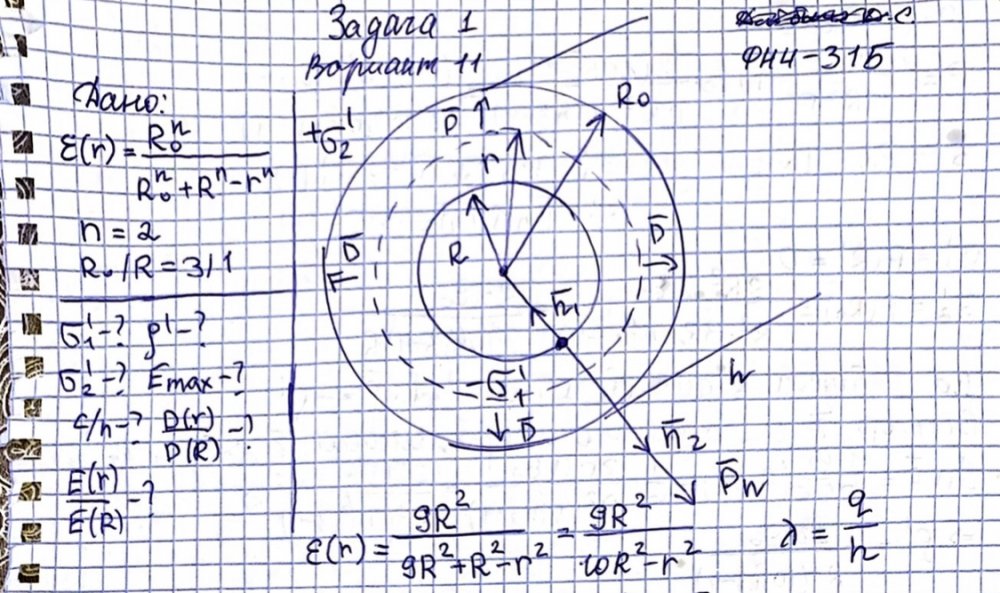 Задача 1
Вариант 11
ФН4-31Б
Дано:
ε(r) = R₀ⁿ / (R₀ⁿ + Rⁿ - rⁿ)
n = 2
R₀/R = 3/1
σ₁' - ? ρ' - ?
σ₂' - ? Emax - ?
C/h - ? D(r)/D(R) - ?
E(r)/E(R) - ?
+σ₂'
D̄
r
R₀
R
D̄
D̄
n̄₁
-σ₁'
D̄
h
n̄₂
ε(r) = 9R² / (9R² + R² - r²) = 9R² / (10R² - r²)
λ = q / h